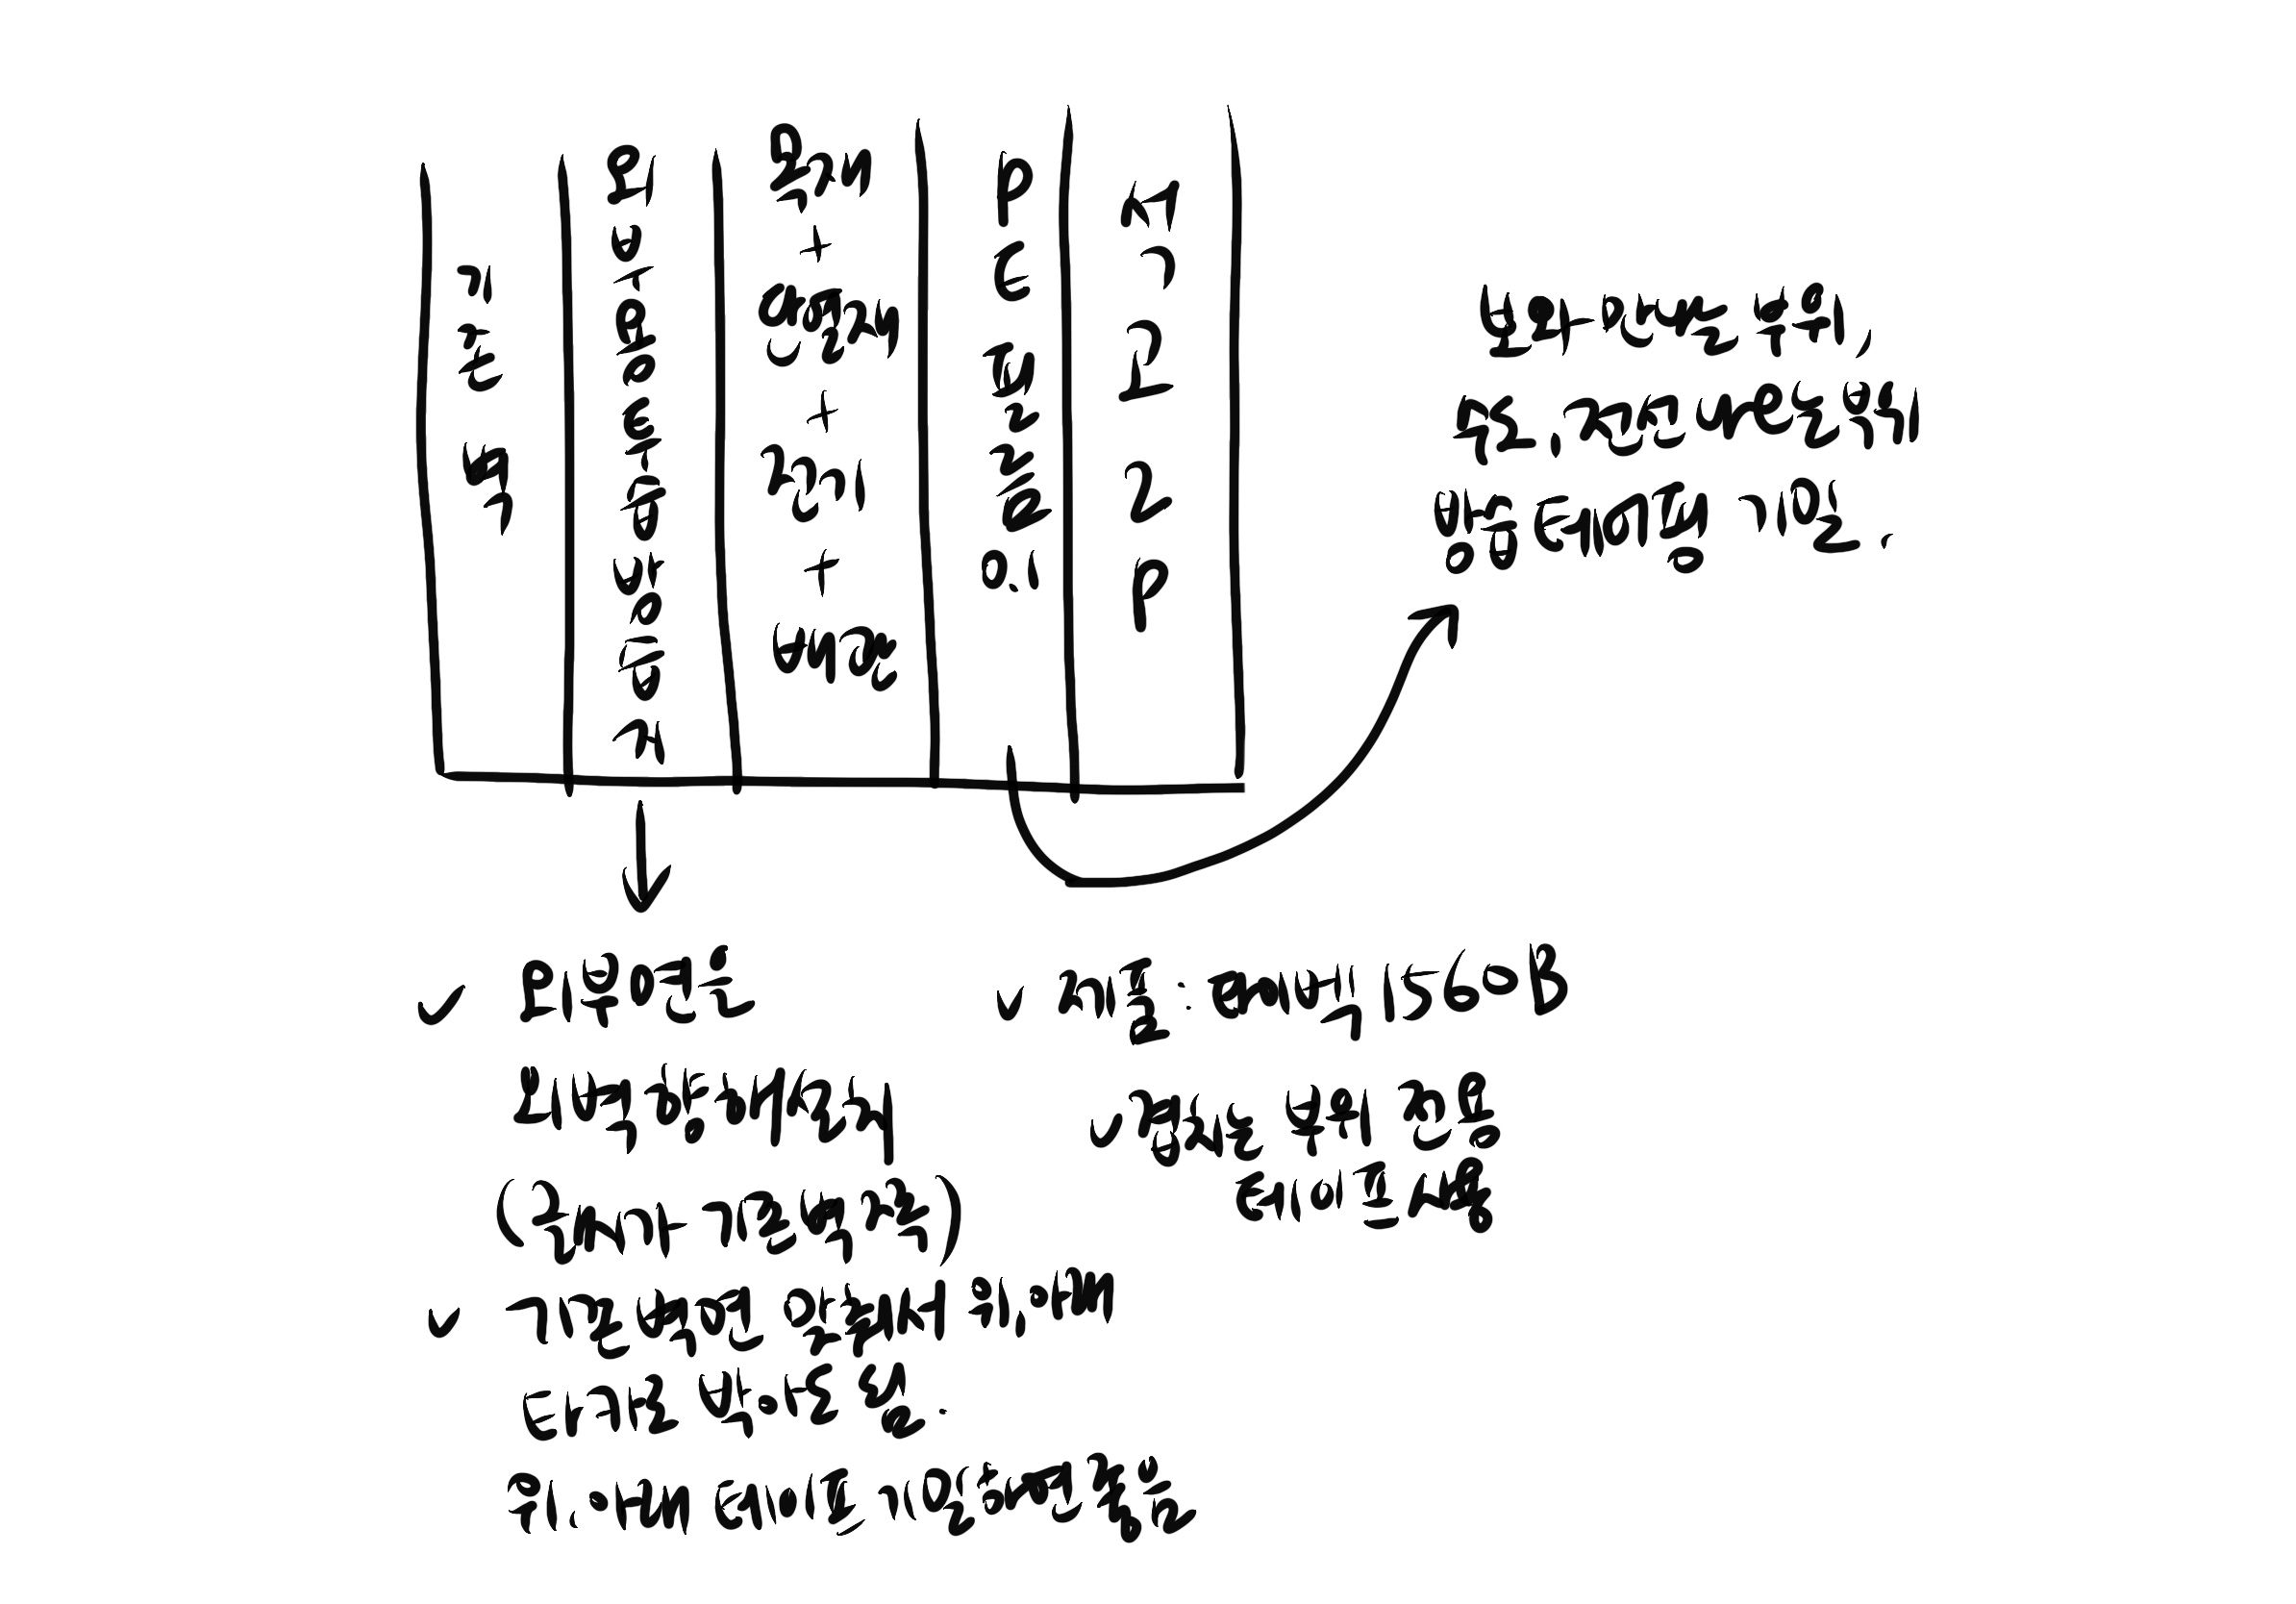 기존 벽
외부용투습방습지
목재
+
단열재
+
전기
+
배관
PE 필름 0.1
석고 2P
보와 만나는 부위,
수도, 전선 나오는 부위
방습 테이핑 기밀.
외부면은
외벽 향해 설치
(글씨가 기존벽 쪽)
기존 벽면 앞쪽에서 위,아래
타카로 박아도 됨.
위,아래 테이프 기밀하면 좋음
제품: 타이벡 1560B
겹치는 부위 전용
테이프 사용